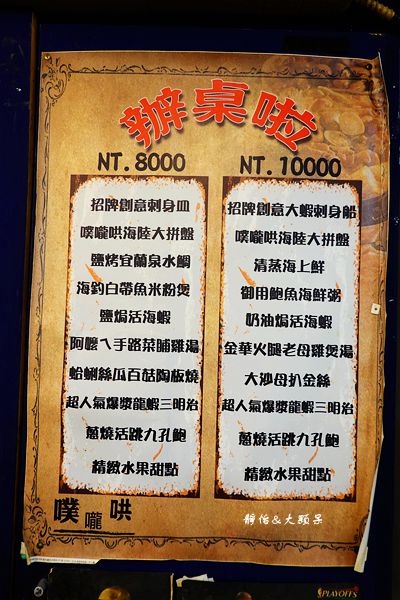 辦桌啦
NT. 8000
招牌創意刺身皿
噗嚨哄海陸大拼盤
鹽烤宜蘭泉水鯛
海釣白帶魚米粉煲
鹽焗活海蝦
阿嬤ㄟ手路菜脯雞湯
蛤蜊絲瓜百菇陶板燒
超人氣爆漿龍蝦三明治
蔥燒活跳九孔鮑
精緻水果甜點
NT. 10000
招牌創意大蝦刺身船
噗嚨哄海陸大拼盤
清蒸海上鮮
御用鮑魚海鮮粥
奶油焗活海蝦
金華火腿老母雞煲湯
大沙母扒金絲
超人氣爆漿龍蝦三明治
蔥燒活跳九孔鮑
精緻水果甜點
噗嚨哄
靜怡&大顆呆
PLAYOFFS